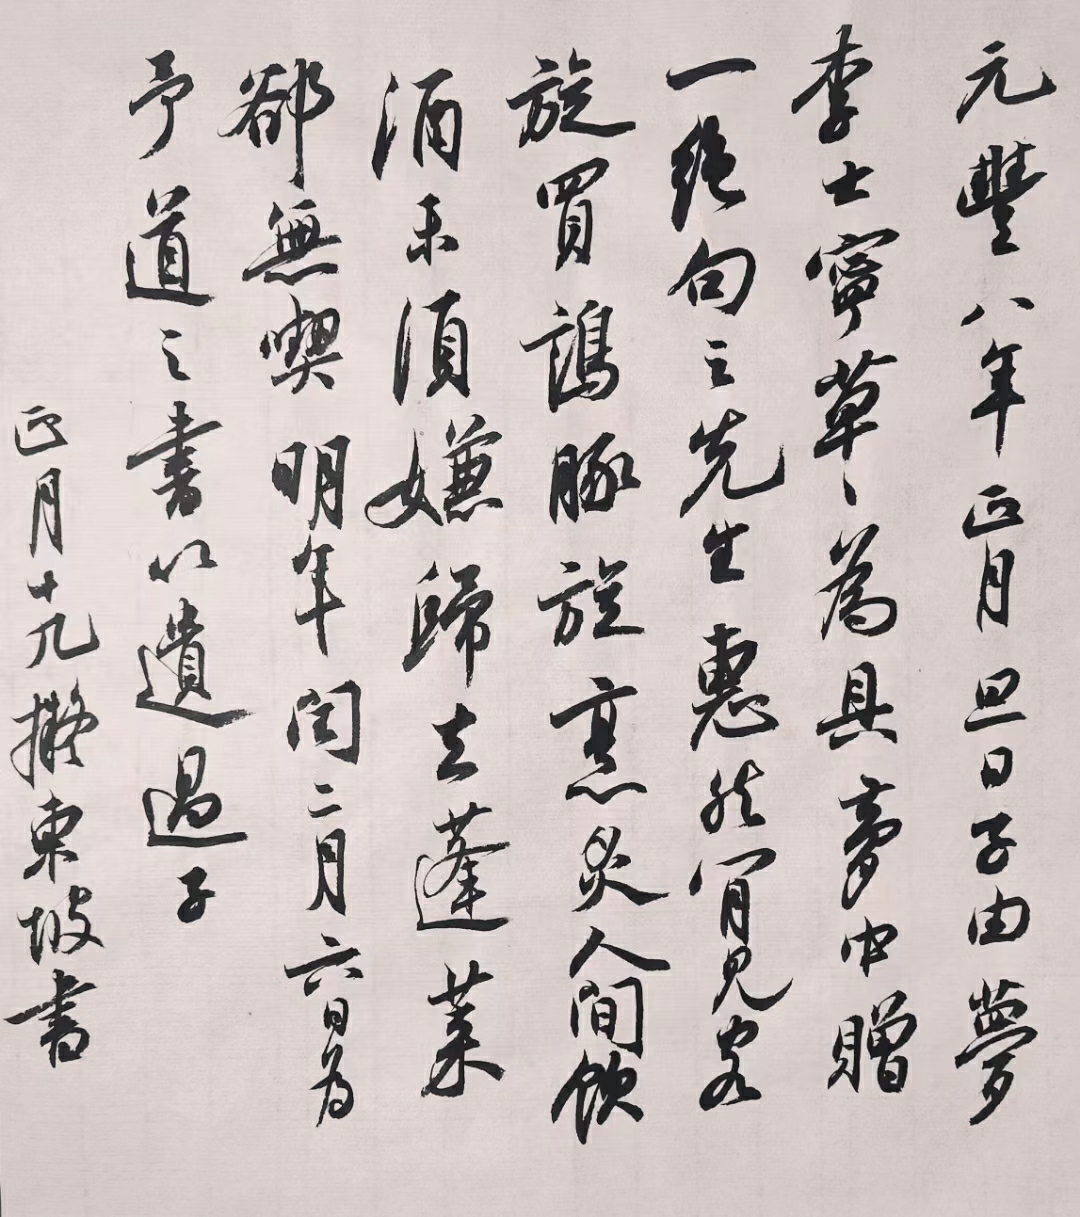 元豐八年正月旦日子由夢
李士寧草〻為具夢中贈
一絕句云先生惠然肯見客
旋買鷄豚旋烹炙人間飲
酒未須嫌歸去蓬萊
郤無喫明年閏二月六日為
予道之書以遺過子
正月十九擬東坡書